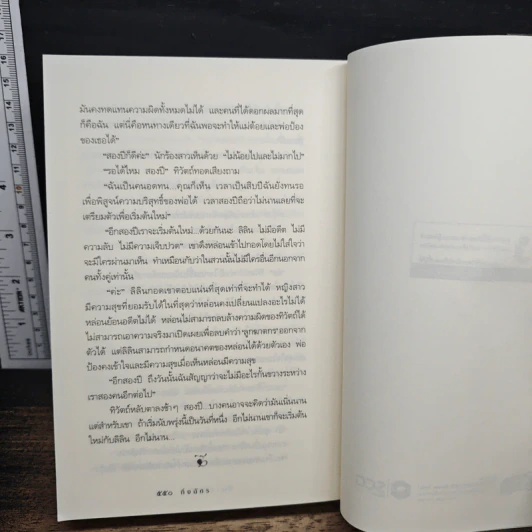 มันคงทดแทนความผิดทั้งหมดไม่ได้ และคนที่ได้ดอกผลมากที่สุด
ก็คือฉัน แต่นี่คือหนทางเดียวที่ฉันพอจะทำให้แม่ต้อยและพ่อป้อง
ของเธอได้”
“สองปีก็ดีค่ะ” นักร้องสาวเห็นด้วย “ไม่น้อยไปและไม่มากไป”
“รอได้ไหม สองปี” ทิวัตถ์ทอดเสียงถาม
“ฉันเป็นคนอดทน...คุณก็เห็น เวลาเป็นสิบปีฉันยังทนรอ
เพื่อพิสูจน์ความบริสุทธิ์ของพ่อได้ เวลาสองปีถือว่าไม่นานเลยที่จะ
เตรียมตัวเพื่อเริ่มต้นใหม่”
“อีกสองปีเราจะเริ่มใหม่...ด้วยกันนะ ลิลิน ไม่มีอดีต ไม่มี
ความลับ ไม่มีความเจ็บปวด” เขาดึงหล่อนเข้าไปกอดโดยไม่ใส่ใจว่า
จะมีใครผ่านมาเห็น ทำเหมือนกับว่าในสวนนั้นไม่มีใครอื่นอีกนอกจาก
คนทั้งคู่เท่านั้น
“ค่ะ” ลิลินกอดเขาตอบแน่นที่สุดเท่าที่จะทำได้ หญิงสาว
มีความสุขที่ยอมรับได้ในที่สุดว่าหล่อนคงเปลี่ยนแปลงอะไรไม่ได้
หล่อนย้อนอดีตไม่ได้ หล่อนไม่สามารถลบล้างความผิดของทิวัตถ์ได้
ไม่สามารถเอาความจริงมาเปิดเผยเพื่อลบคำว่า ‘ลูกฆาตกร’ ออกจาก
ตัวได้ แต่ลิลินสามารถกำหนดอนาคตของหล่อนได้ด้วยตัวเอง พ่อ
ป้องคงเข้าใจและมีความสุขเมื่อเห็นหล่อนมีความสุข
“อีกสองปี ถึงวันนั้นฉันสัญญาว่าจะไม่มีอะไรกั้นขวางระหว่าง
เราสองคนอีกต่อไป”
ทิวัตถ์หลับตาลงช้าๆ สองปี...บางคนอาจจะคิดว่ามันเนิ่นนาน
แต่สำหรับเขา ถ้าเริ่มนับพรุ่งนี้เป็นวันที่หนึ่ง อีกไม่นานเขาก็จะเริ่มต้น
ใหม่กับลิลิน อีกไม่นาน...
๕๕๐ กิ่งฉัตร